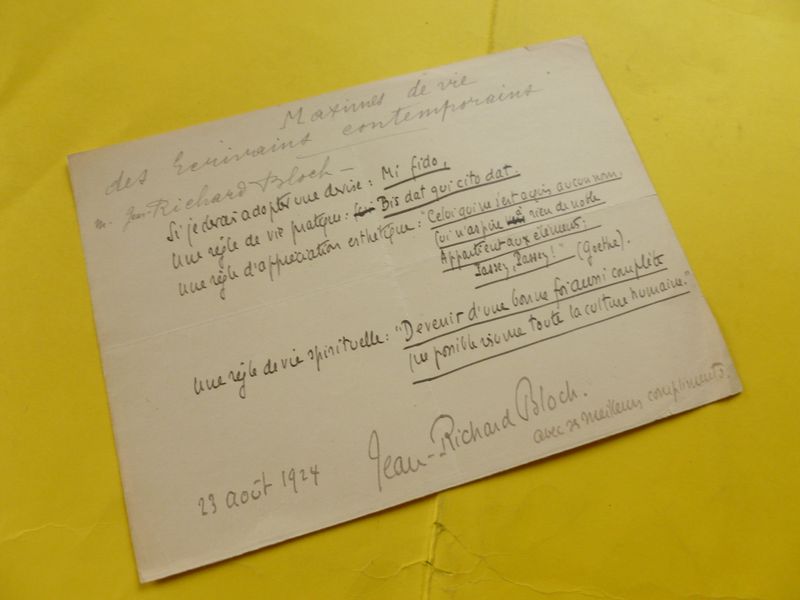 Maximes de vie
des Ecrivains contemporains
M. Jean-Richard Bloch —
Si je devais adopter une devise : Mi fido.
Une règle de vie pratique : Bis dat qui cito dat.
Une règle d'appréciation esthétique : "Celui qui ne s'est acquis aucun nom
Qui n'aspire à rien de noble
Appartient aux éléments :
Passez, Passez !" (Goethe).
Une règle de vie spirituelle : "Devenir d'une bonne foi aussi complète
que possible résume toute la culture humaine."
Jean-Richard Bloch.
avec ses meilleurs compliments.
23 août 1924